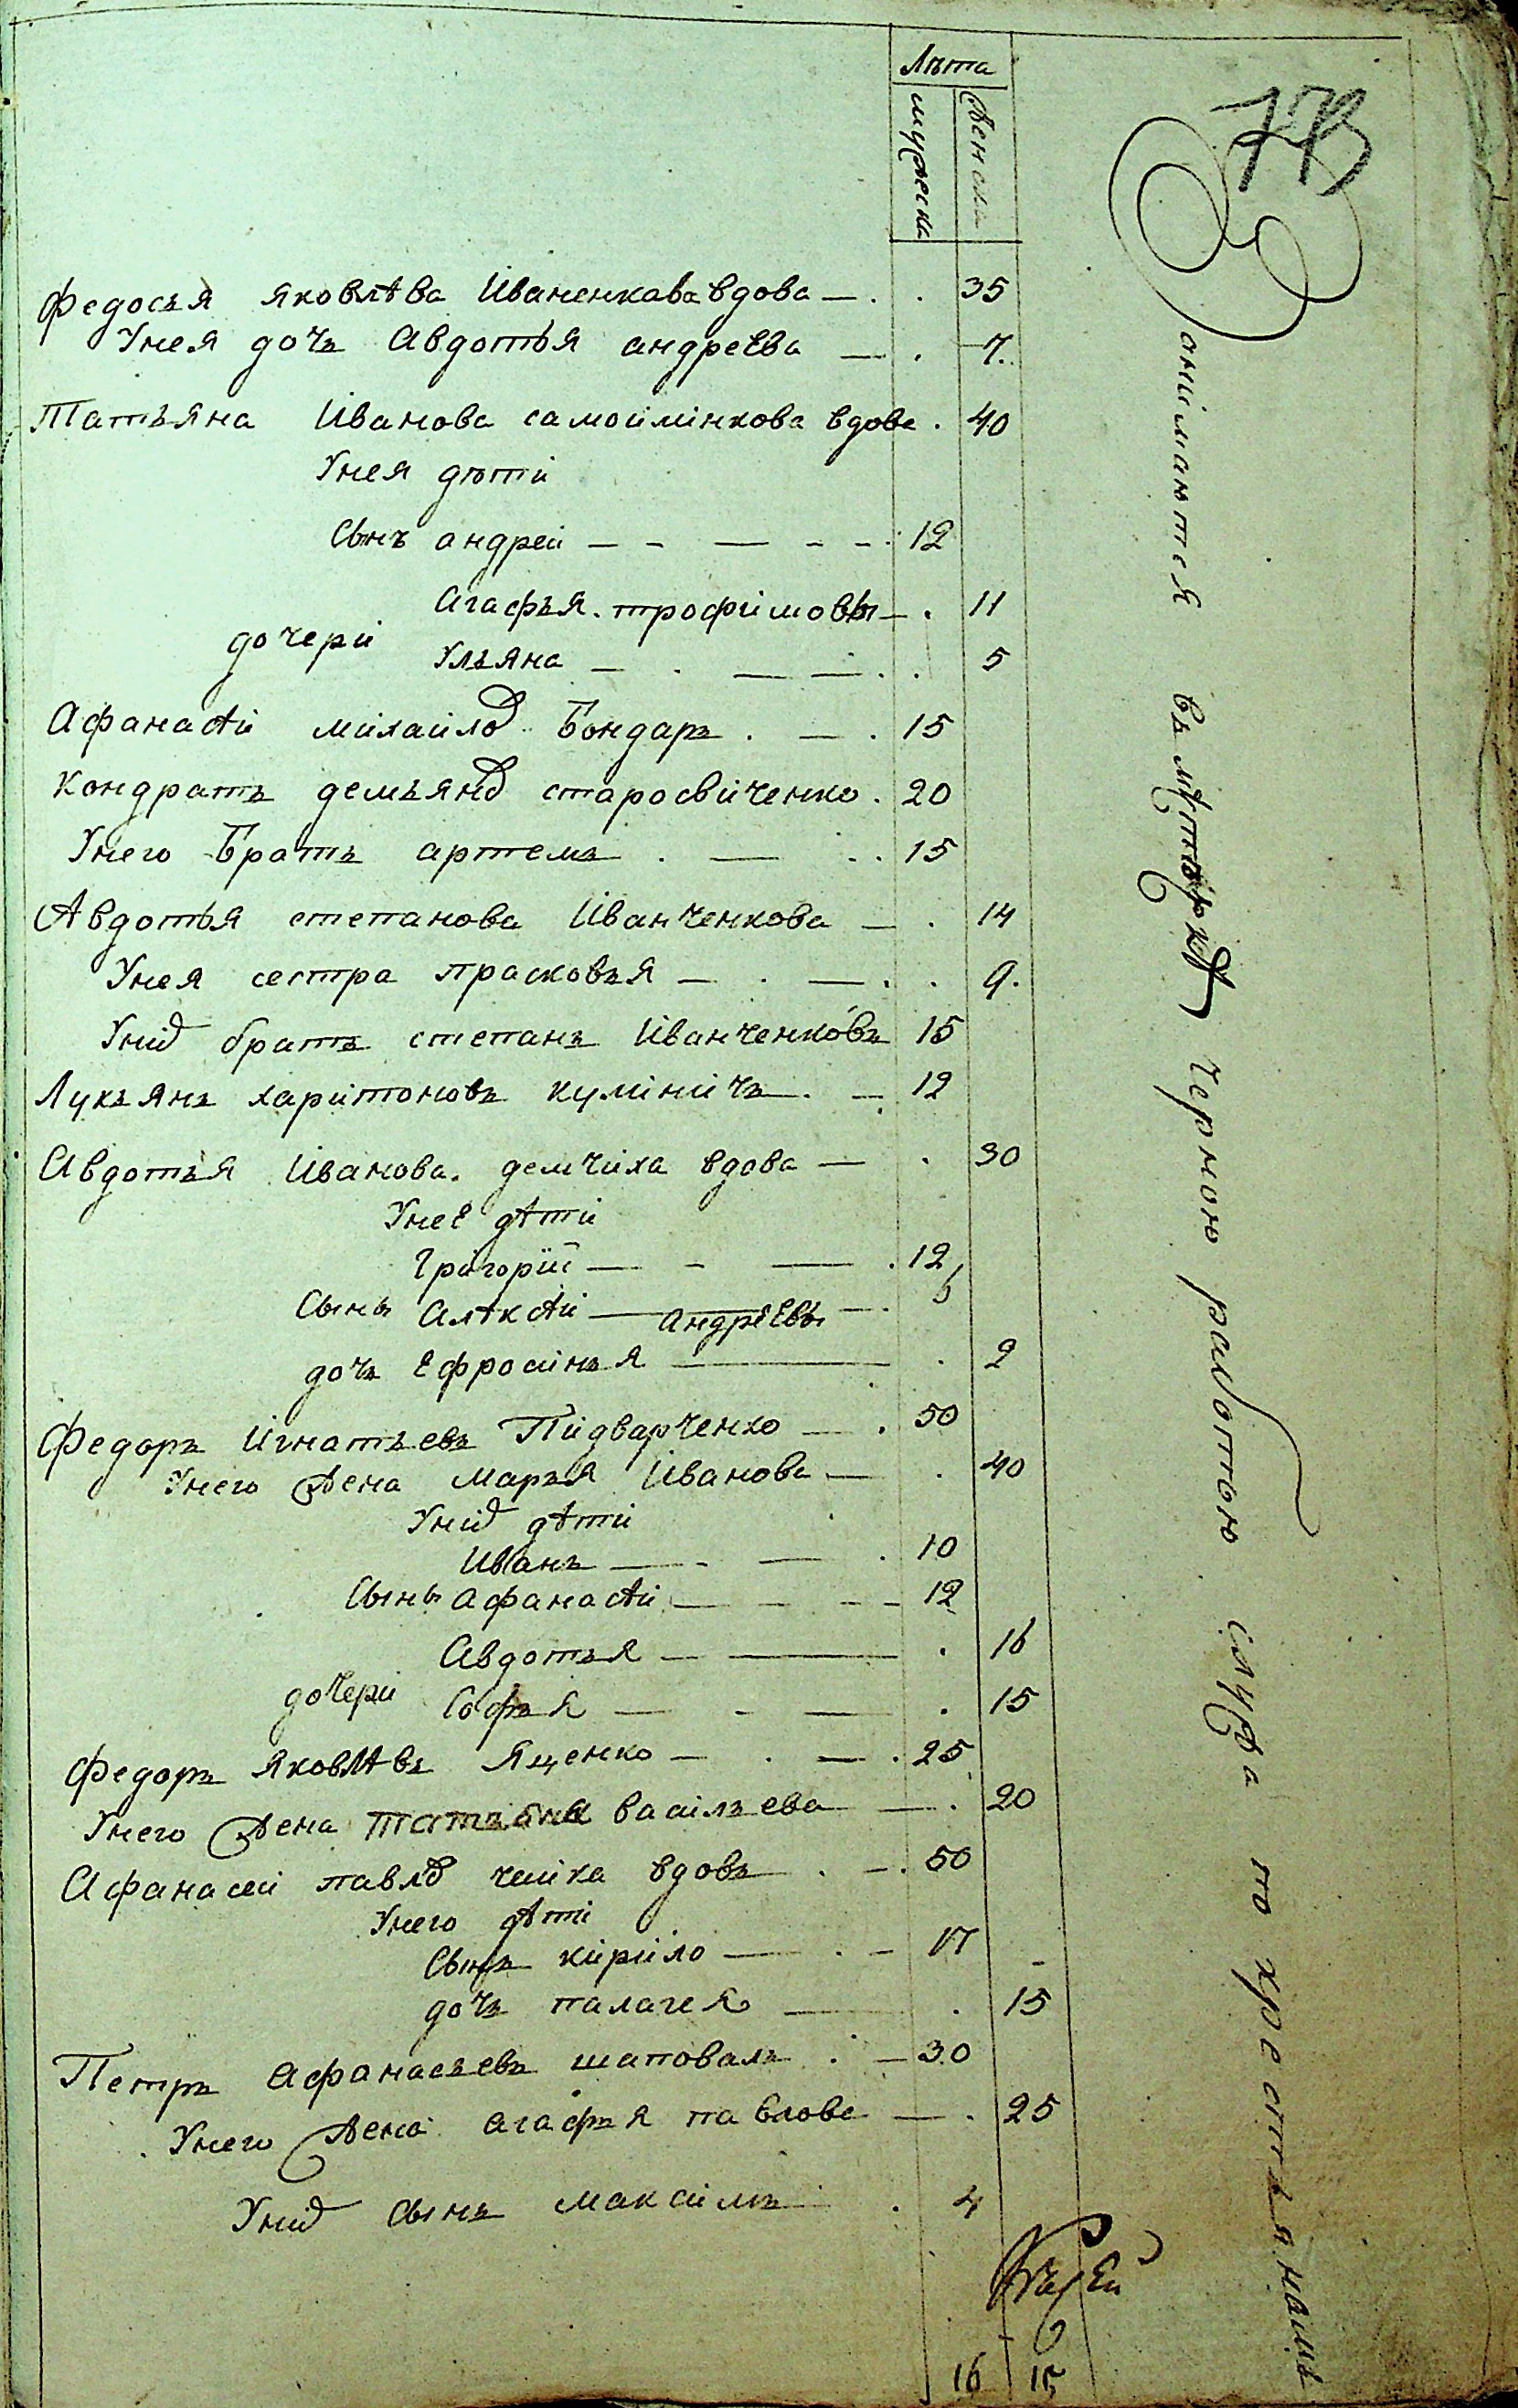 Лѣта
мужеска
женска
Федосья яковлѣва Иваненкова вдова 35
Унея дочь Авдотья андреева 7.
Татьяна Иванова самойлинкова вдова 40
Унея дѣти
Сынъ андрей 12
Агафья трофимовы 11
дочери
Ульяна 5
Афанасѣй михайлов Бондарь 15
Кондратъ демьянов старосвиченко 20
Унего Братъ артемъ 15
Авдотья степанова Иванченкова 14
Унея сестра прасковья 9.
Уних братъ степанъ Иванченковъ 15
Лукьянъ харитоновъ куминичъ 12
Авдотья Иванова демчиха вдова 30
Унее дѣти
Григорий 12
Сыны Алѣксѣй андрѣевы 5
дочь Ефросинья 2
Федоръ Игнатьевъ Пидварченко 50
Унего жена марья Иванова 40
Уних дѣти
Иванъ 10
Сыны Афанасѣй 12
Авдотья 16
дочери
Софья 15
Федоръ Яковлѣвъ Яценко 25
Унего жена татьяна васильева 20
Афанасей павлов чайка вдовъ 50
Унего дѣти
Сынъ кирило 17
дочь палагея 15
Петръ Афанасьевъ шаповалъ 30
Унего жена агафья павлова 25
Уних Сынъ максимъ 4
16 15
Занимаются въ черною работою служа по хрестьянамъ